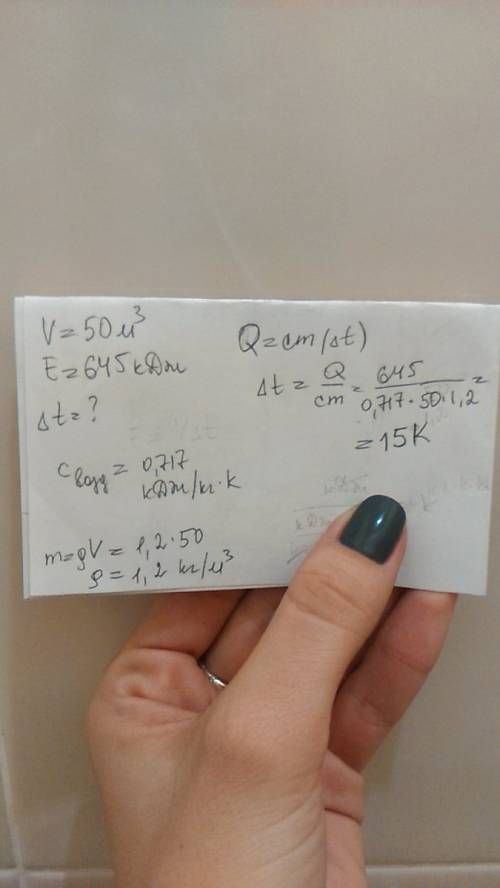 V = 50 м³
E = 645 кДж
Δt = ?
c возд = 0,717 кДж/кг·К
m = ρV = 1,2·50
ρ = 1,2 кг/м³
Q = cm(Δt)
Δt = Q/cm = 645/0,717·50·1,2 =
= 15K